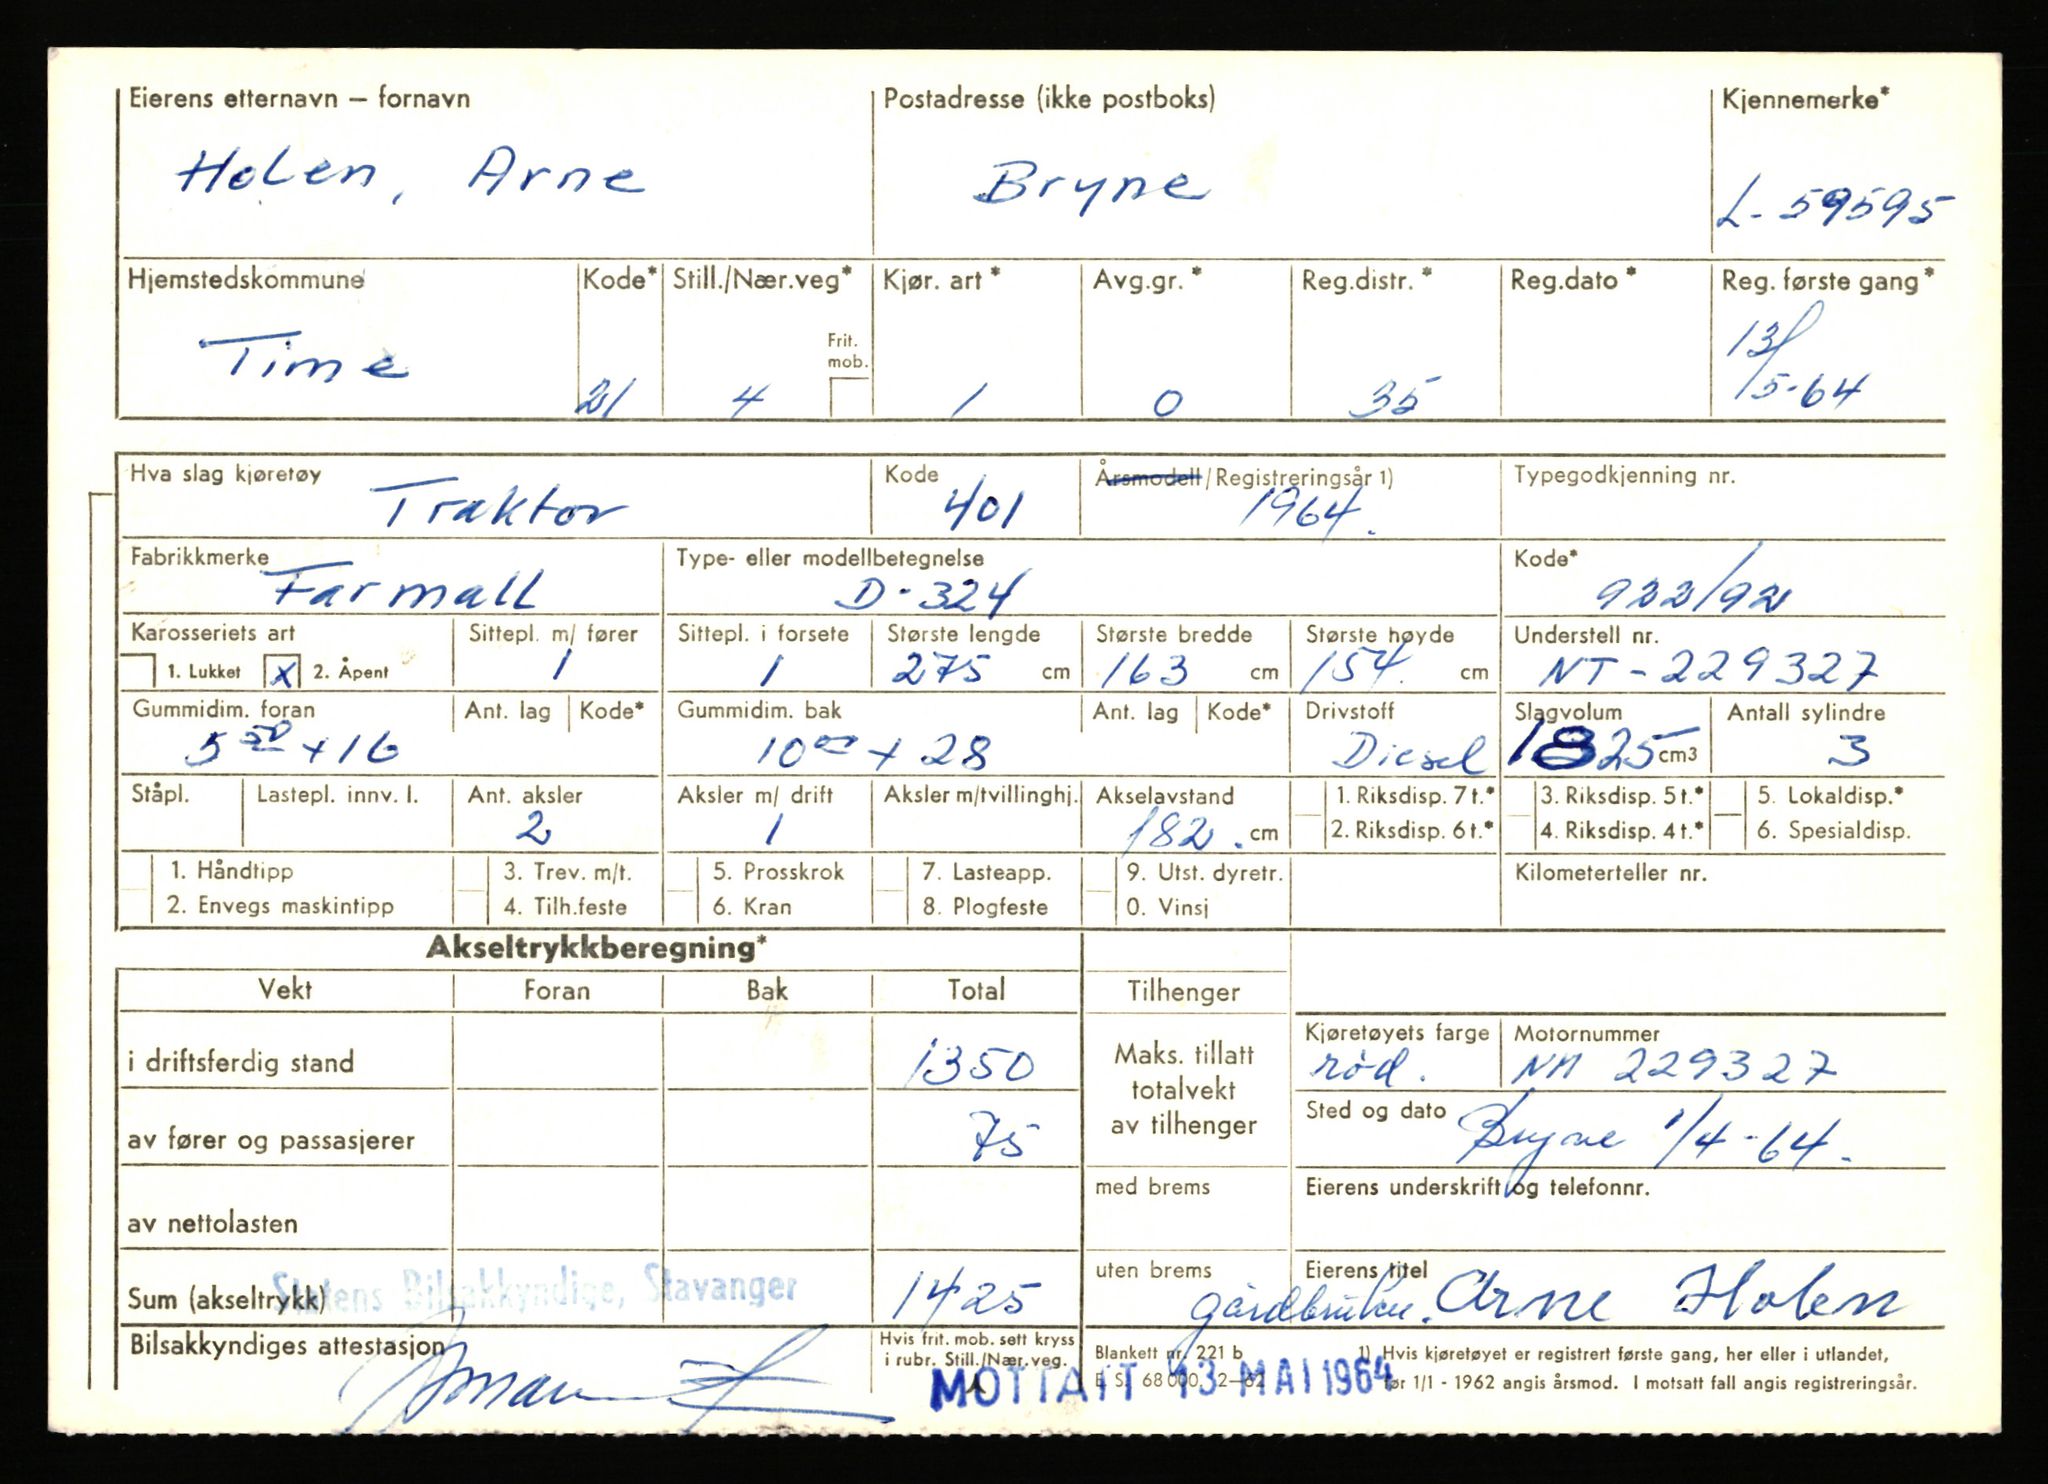 Eierens etternavn – fornavn Postadresse (ikke postboks) Kjennemerke*
Holen, Arne Bryne L-59595
Hjemstedskommune Kode* Still./Nær.veg* Kjør. art* Avg.gr.* Reg.distr.* Reg.dato* Reg. første gang*
Time 21 4 Frit. mob. 1 0 35 13/5-64
Hva slag kjøretøy Kode Årsmodell/Registreringsår 1) Typegodkjenning nr.
Traktor 401 1964.
Fabrikkmerke Type- eller modellbetegnelse Kode*
Farmall D-324 922/92
Karosseriets art Sittepl. m/ fører Sittepl. i forsete Største lengde Største bredde Største høyde Understell nr.
1. Lukket x 2. Åpent 1 1 275 cm 163 cm 154. cm NT-229327
Gummidim. foran Ant. lag Kode* Gummidim. bak Ant. lag Kode* Drivstoff Slagvolum Antall sylindre
5 50 x 16 10 00 x 28 Diesel 1825 cm3 3
Ståpl. Lastepl. innv. l. Ant. aksler Aksler m/ drift Aksler m/tvillinghj. Akselavstand 1. Riksdisp. 7 t.* 3. Riksdisp. 5 t.* 5. Lokaldisp.*
2 1 182. cm 2. Riksdisp. 6 t.* 4. Riksdisp. 4 t.* 6. Spesialdisp.
1. Håndtipp 3. Trev. m/t. 5. Prosskrok 7. Lasteapp. 9. Utst. dyretr. Kilometerteller nr.
2. Envegs maskintipp 4. Tilh.feste 6. Kran 8. Plogfeste 0. Vinsj
Akseltrykkberegning*
Vekt Foran Bak Total Tilhenger
Kjøretøyets farge Motornummer
i driftsferdig stand 1350 Maks. tillatt rød. NM 229327
totalvekt
Sted og dato Bryne 1/4-64.
av fører og passasjerer 75 av tilhenger
med brems Eierens underskrift og telefonnr.
av nettolasten
uten brems Eierens titel
Sum (akseltrykk) Statens Bilsakkyndige, Stavanger 1425 gårdbruker. Arne Holen
Bilsakkyndiges attestasjon Hvis frit. mob. sett kryss i rubr. Still./Nær.veg. Blankett nr. 221 b 1) Hvis kjøretøyet er registrert første gang, her eller i utlandet,
MOTTATT 13 MAI 1964 E. S. 68000. 12–62 før 1/1 - 1962 angis årsmod. I motsatt fall angis registreringsår.